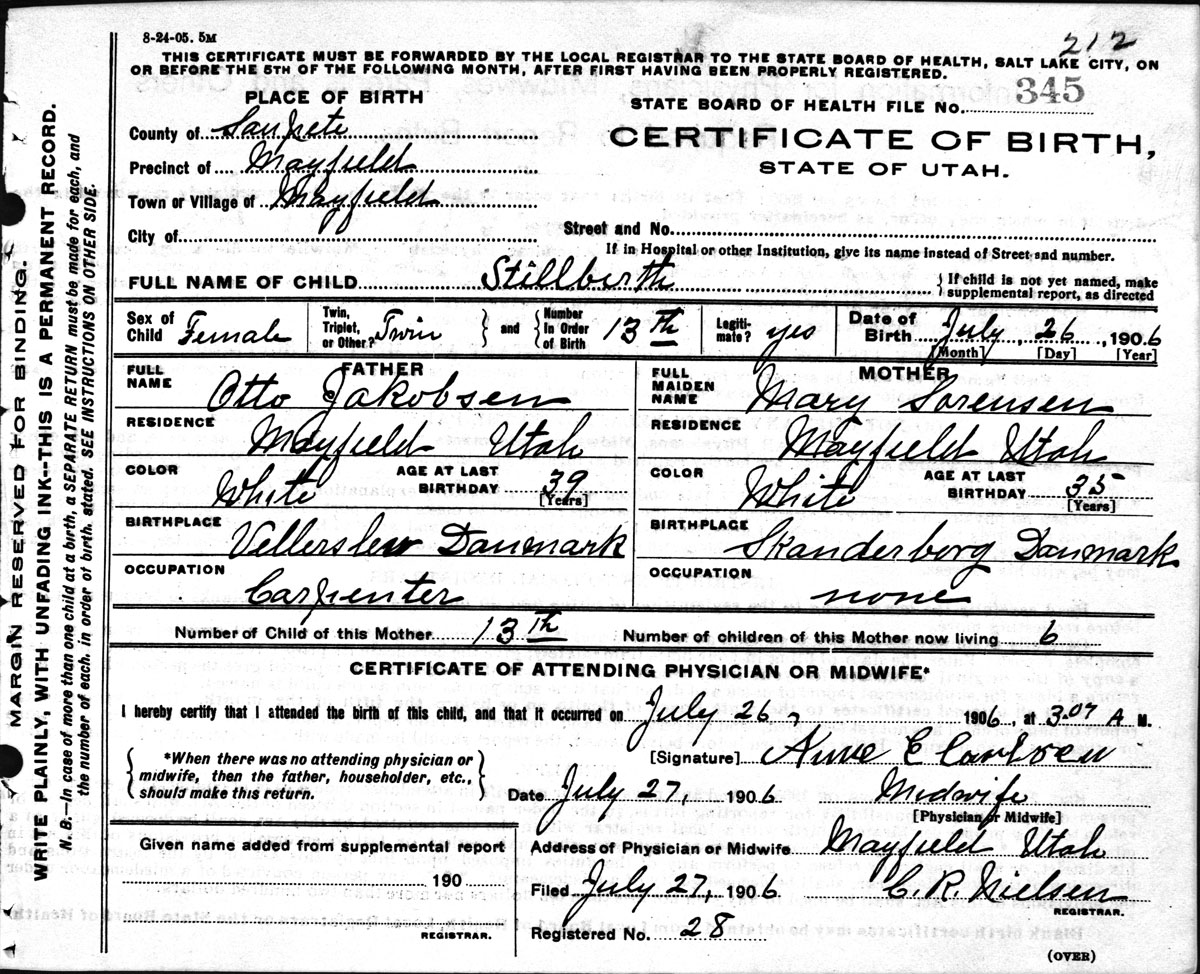 8-24-05. 5M
212
THIS CERTIFICATE MUST BE FORWARDED BY THE LOCAL REGISTRAR TO THE STATE BOARD OF HEALTH, SALT LAKE CITY, ON
OR BEFORE THE 5TH OF THE FOLLOWING MONTH, AFTER FIRST HAVING BEEN PROPERLY REGISTERED.
PLACE OF BIRTH
STATE BOARD OF HEALTH FILE No. 345
County of Sanpete
CERTIFICATE OF BIRTH,
Precinct of Mayfield
STATE OF UTAH.
Town or Village of Mayfield
City of Street and No.
If in Hospital or other Institution, give its name instead of Street and number.
FULL NAME OF CHILD Stillbirth { If child is not yet named, make
supplemental report, as directed
Sex of Child Female Twin, Triplet, or Other? Twin } and { Number In Order of Birth 13th Legiti-mate? yes Date of Birth July, 26, 1906
[Month] [Day] [Year]
FATHER MOTHER
FULL NAME Otto Jakobsen FULL MAIDEN NAME Mary Sorensen
RESIDENCE Mayfield Utah RESIDENCE Mayfield Utah
COLOR White AGE AT LAST BIRTHDAY 39 [Years] COLOR White AGE AT LAST BIRTHDAY 35 [Years]
BIRTHPLACE Vellerslew Danmark BIRTHPLACE Skanderborg Danmark
OCCUPATION Carpenter OCCUPATION none
Number of Child of this Mother 13th Number of children of this Mother now living 6
CERTIFICATE OF ATTENDING PHYSICIAN OR MIDWIFE*
I hereby certify that I attended the birth of this child, and that it occurred on July 26, 1906, at 3.07 A M.
{ *When there was no attending physician or
midwife, then the father, householder, etc.,
should make this return. }
[Signature] Anne C Carlsen
Date July 27, 1906 Midwife
[Physician or Midwife]
Given name added from supplemental report
Address of Physician or Midwife Mayfield Utah
190
Filed July 27, 1906 C. R. Nielsen
REGISTRAR.
REGISTRAR.
Registered No. 28
(OVER)
MARGIN RESERVED FOR BINDING.
WRITE PLAINLY, WITH UNFADING INK--THIS IS A PERMANENT RECORD.
N. B.—In case of more than one child at birth, a SEPARATE RETURN must be made for each, and
the number of each, in order of birth, stated. SEE INSTRUCTIONS ON OTHER SIDE.